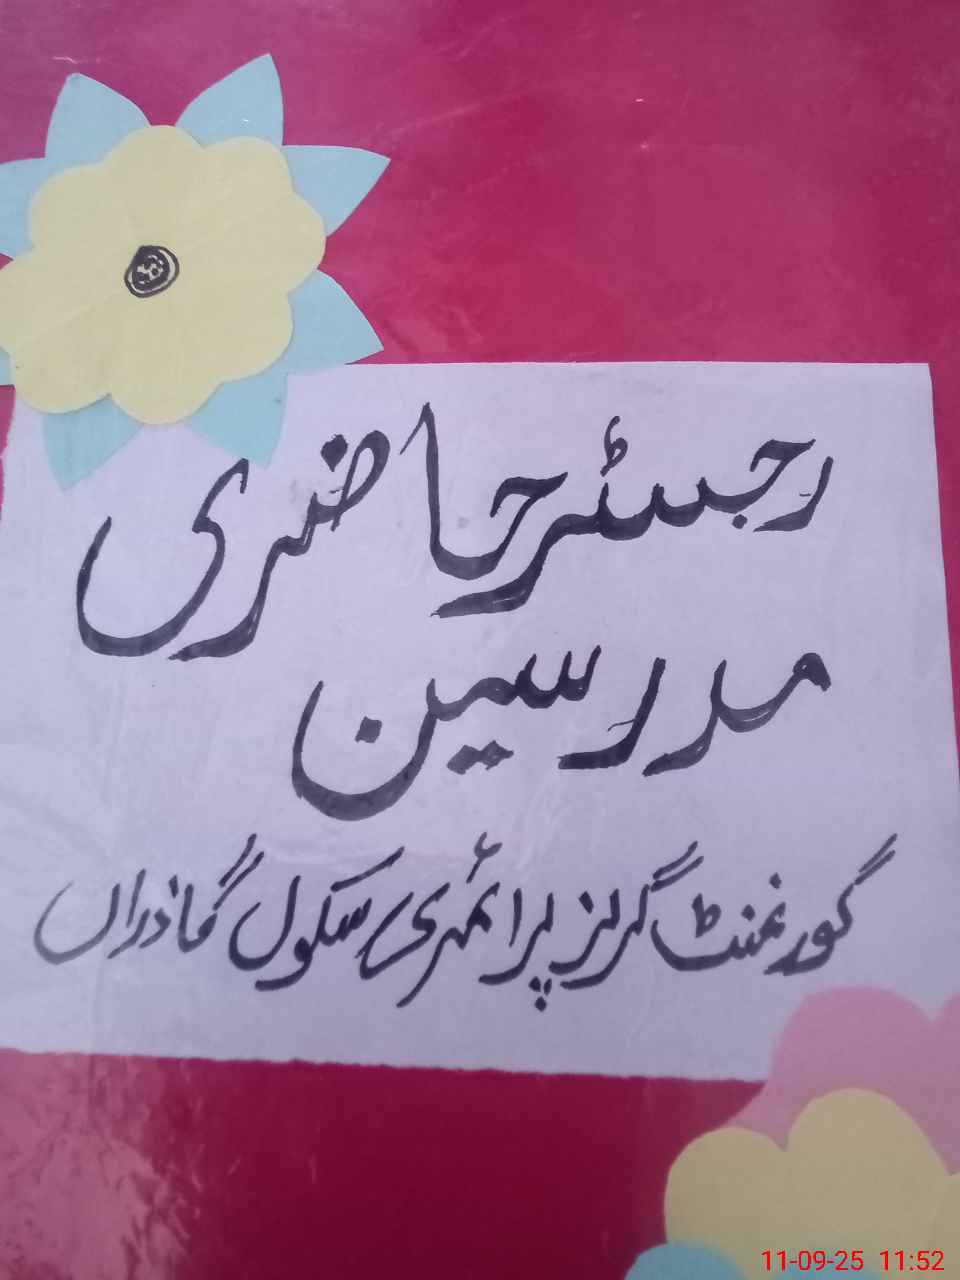 رجسٹر حاضری
مدرسین
گورنمنٹ گرلز پرائمری سکول گاذراں
11-09-25 11:52